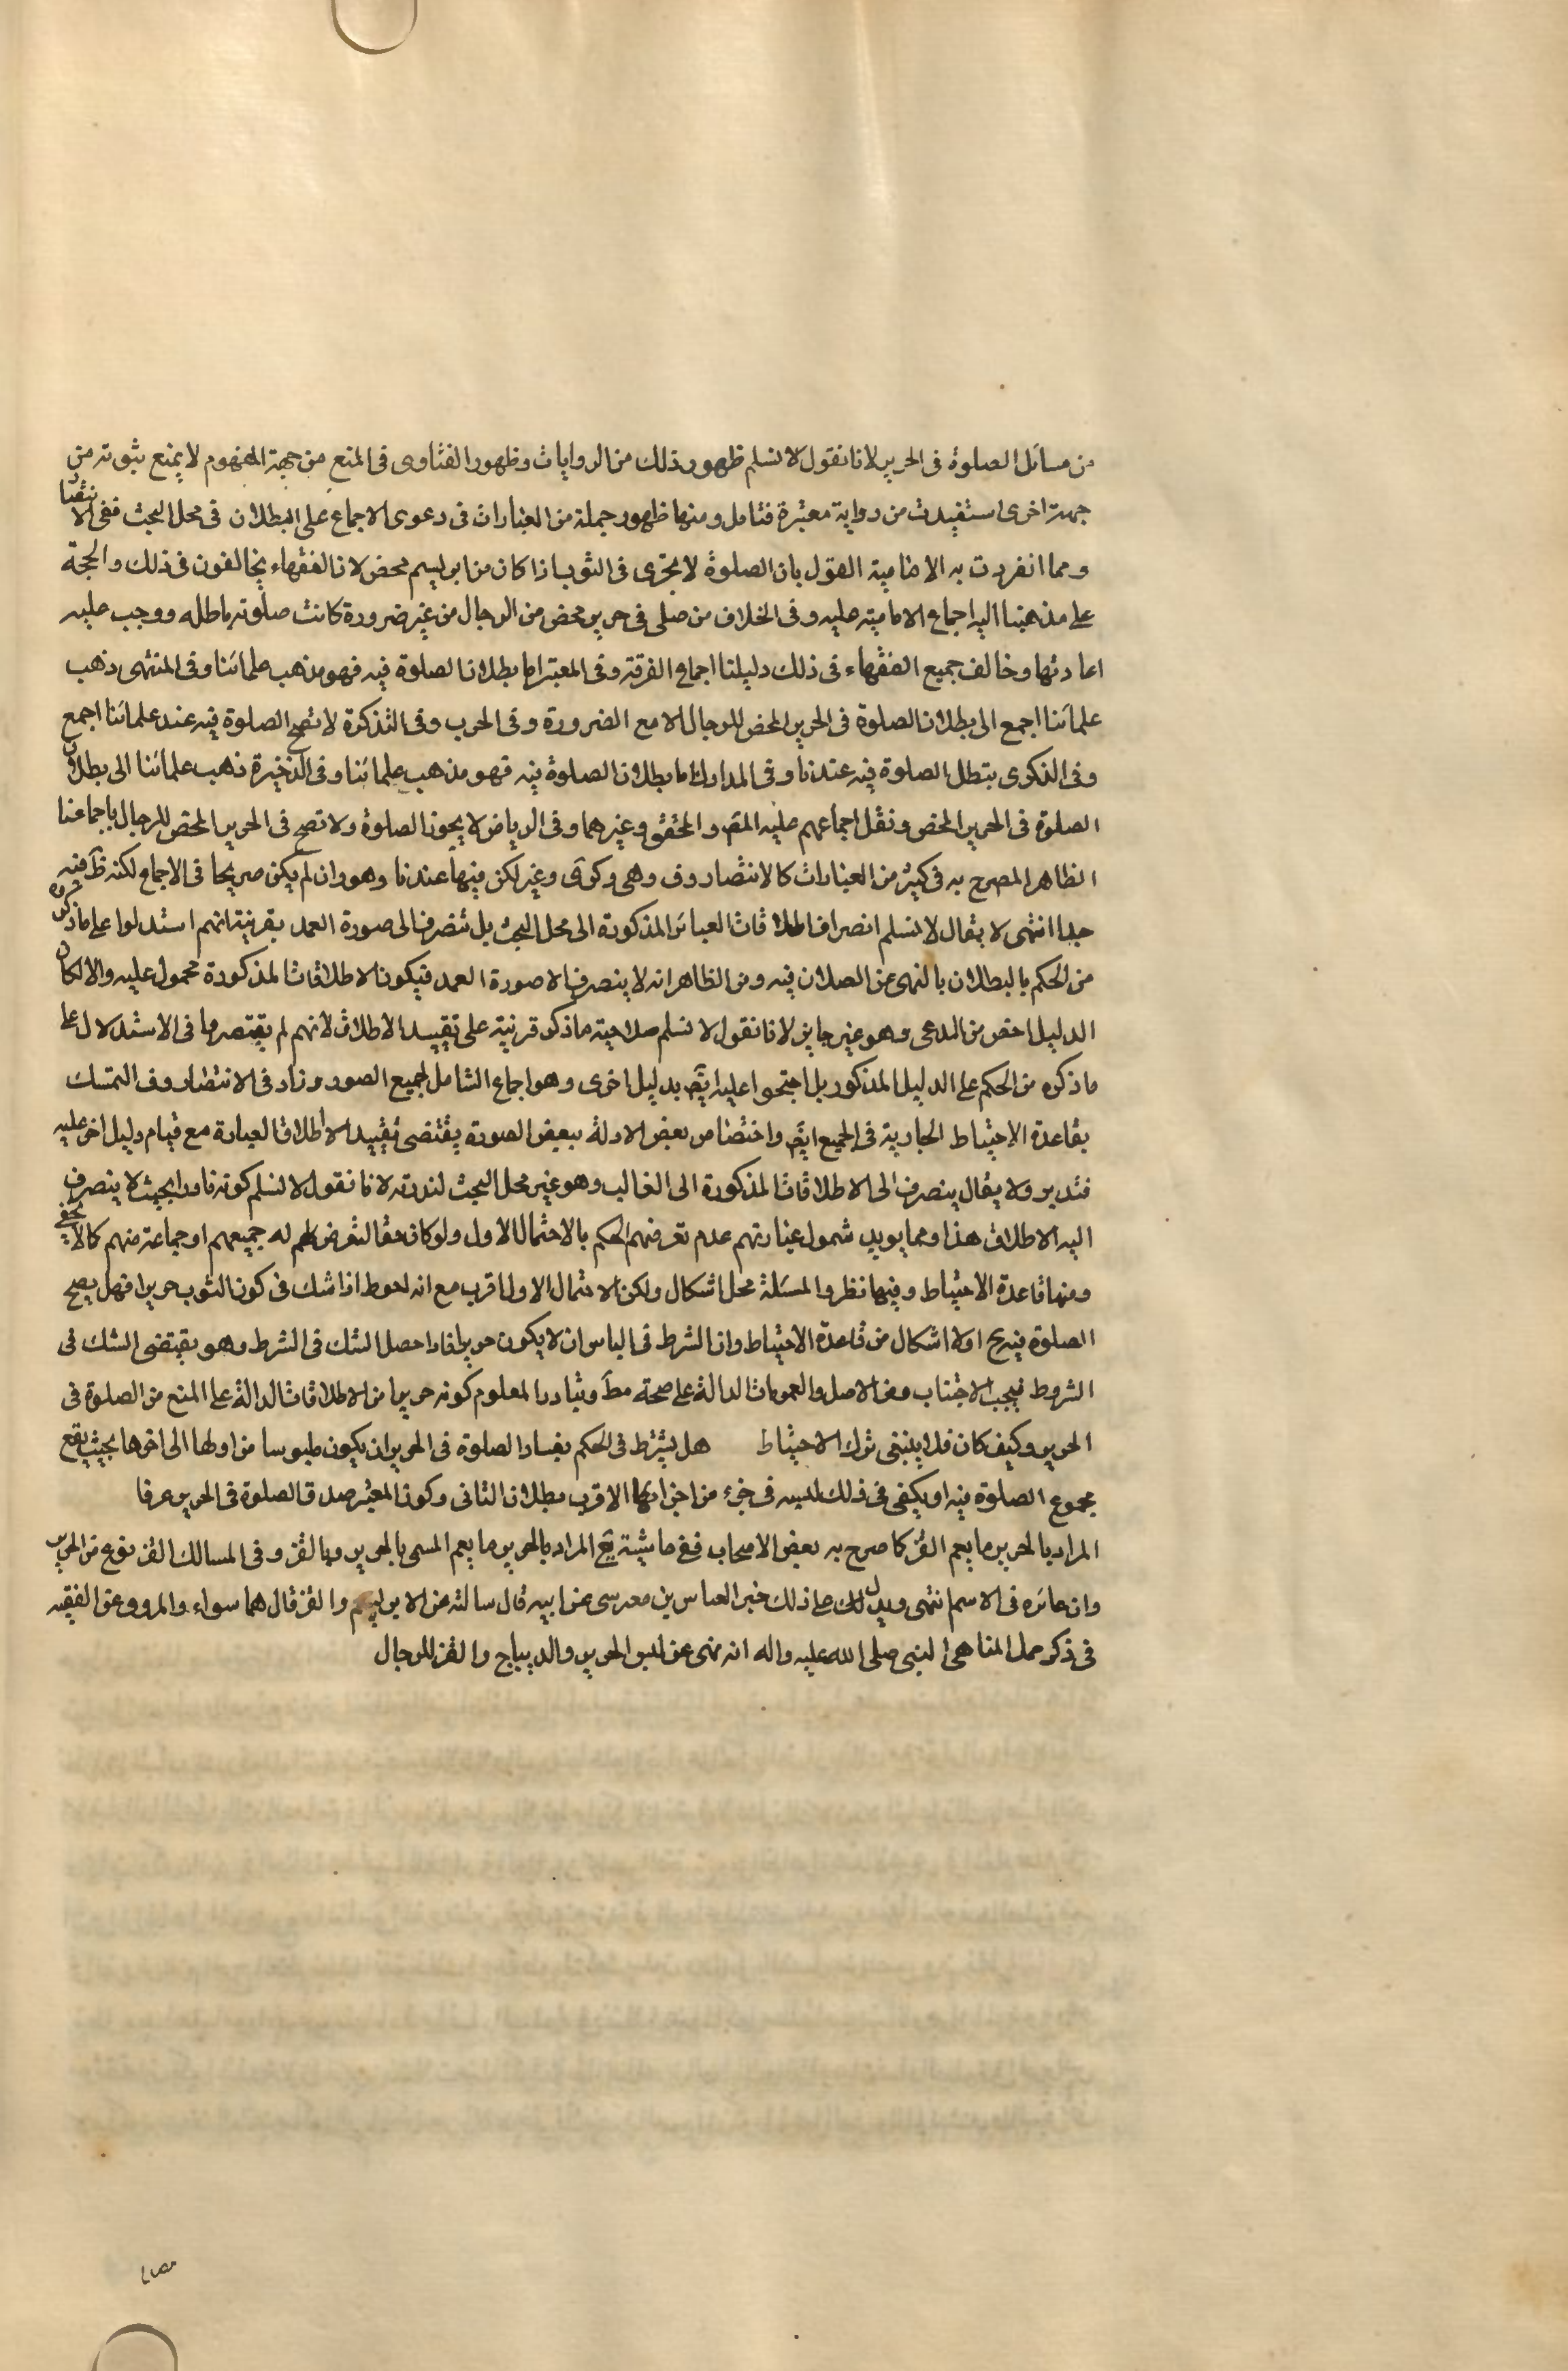 من مسائل الصلوة فى الحرير لانا نقول لا نسلم ظهور ذلك من الروايات وظهور الفتاوى فى المنع من جهة المفهوم لا يمنع ثبوته من
جهة اخرى استفيدت من رواية معتبرة فتامل ومنها ظهور جملة من العبارات فى دعوى الاجماع على البطلان فى محل البحث ففى الانتصار
ومما انفردت به الامامية القول بان الصلوة لا تجزى فى الثوب اذا كان من ابريسم محض لان الفقهاء يخالفون فى ذلك والحجة
على مذهبنا اليه اجماع الامامية عليه وفى الخلاف من صلى فى حرير محض من الرجال من غير ضرورة كانت صلوته باطله ووجب عليه
اعادتها وخالف جميع الفقهاء فى ذلك دليلنا اجماع الفرقة وفى المعتبر اما بطلان الصلوة فيه فهو مذهب علمائنا وفى المنتهى ذهب
علمائنا اجمع الى بطلان الصلوة فى الحرير المحض للرجال الا مع الضرورة وفى الحرب وفى التذكرة لا تصح الصلوة فيه عند علمائنا اجمع
وفى الذكرى يبطل الصلوة فيه عندنا وفى المدارك اما بطلان الصلوة فيه فهو مذهب علمائنا وفى الذخيرة ذهب علمائنا الى بطلان
الصلوة فى الحرير المحض ونقل اجماعهم عليه المص والمحقق وغيرهما وفى الرياض لا يجوز الصلوة ولا تصح فى الحرير المحض للرجال باجماعنا
الظاهر المصرح به فى كثير من العبارات كالانتصار وف وهى وكرى وغير لكن فيها عندنا وهو وان لم يكن صريحا فى الاجماع لكنه ظ فيه
جدا انتهى لا يقال لا نسلم انصراف اطلاقات العبائر المذكورة الى محل البحث بل تنصرف الى صورة العمد بقرينة انهم استدلوا على ما ذكروه
من الحكم بالبطلان بالنهى عن الصلان فيه ومن الظاهر انه لا ينصرف الا صورة العمد فيكون الاطلاقات المذكورة محمول عليه والا لكان
الدليل اخص من المدعى وهو غير جايز لانا نقول لا نسلم صلاحية ما ذكر قرنية على تقييد الاطلاق لانهم لم يقتصروا فى الاستدلال على
ما ذكره من الحكم على الدليل المذكور بل احتجوا عليه ايض بدليل اخرى وهو اجماع الشامل لجميع الصور وزاد فى الانتصار وف التمسك
بقاعدة الاحتياط الجارية فى الجميع ايض واختصاص بعض الادلة ببعض الصورة يقتضى تقييد الاطلاق العبارة مع قيام دليل اخر عليه
فتدبر ولا يقال ينصرف الى الاطلاقات المذكورة الى الغالب وهو غير محل البحث لندرته لانا نقول لا نسلم كونه نادرا بحيث لا ينصرف
اليه الاطلاق هذا ومما يويد شمول عبارتهم عدم تعرضهم لحكم بالاحتمال الاول ولو كان حقا لتعرض لهم له جميعهم او جماعة منهم كما لا يخفى
ومنها قاعدة الاحتياط وفيها نظر والمسئلة محل اشكال ولكن الاحتمال الاول اقرب مع انه احوط اذا شك فى كون الثوب حريرا فهل يصح
الصلوة فيه ح او لا اشكال من قاعدة الاحتياط وان الشرط فى الباس ان لا يكون حريرا فاذا حصل الشك فى الشرط وهو يقتضى الشك فى
الشروط فيجب الاجتناب ومن الاصل والعمومات الدالة على صحة مط وتبادر المعلوم كونه حريرا من الاطلاقات الدالة على المنع من الصلوة فى
الحرير وكيف كان فلا ينبغى ترك الاحتياط هل يشترط فى الحكم بفساد الصلوة فى الحرير ان يكون ملبوسا من اولها الى اخرها بحيث يقع
مجموع الصلوة فيه او يكفى فى ذلك لبسه فى جزء من اجزائها الاقرب بطلان الثانى وكون المعتبر صدق الصلوة فى الحرير عرفا
المراد بالحرير ما يعم القز كما صرح به بعض الاصحاب ففى حاشية يع المراد بالحرير ما يعم المسمى بالحرير وبالقز وفى المسالك القز نوع من الحرير
وان غائره فى الاسم انتهى ويدل على ذلك خبر العباس بن موسى عن ابيه قال سالته عن الابريسم والقز قال هما سواء والمروو عن الفقيه
فى ذكر جمل المناهى النبى صلى الله عليه واله انه نهى عن لبس الحرير والديباج والقز للرجال